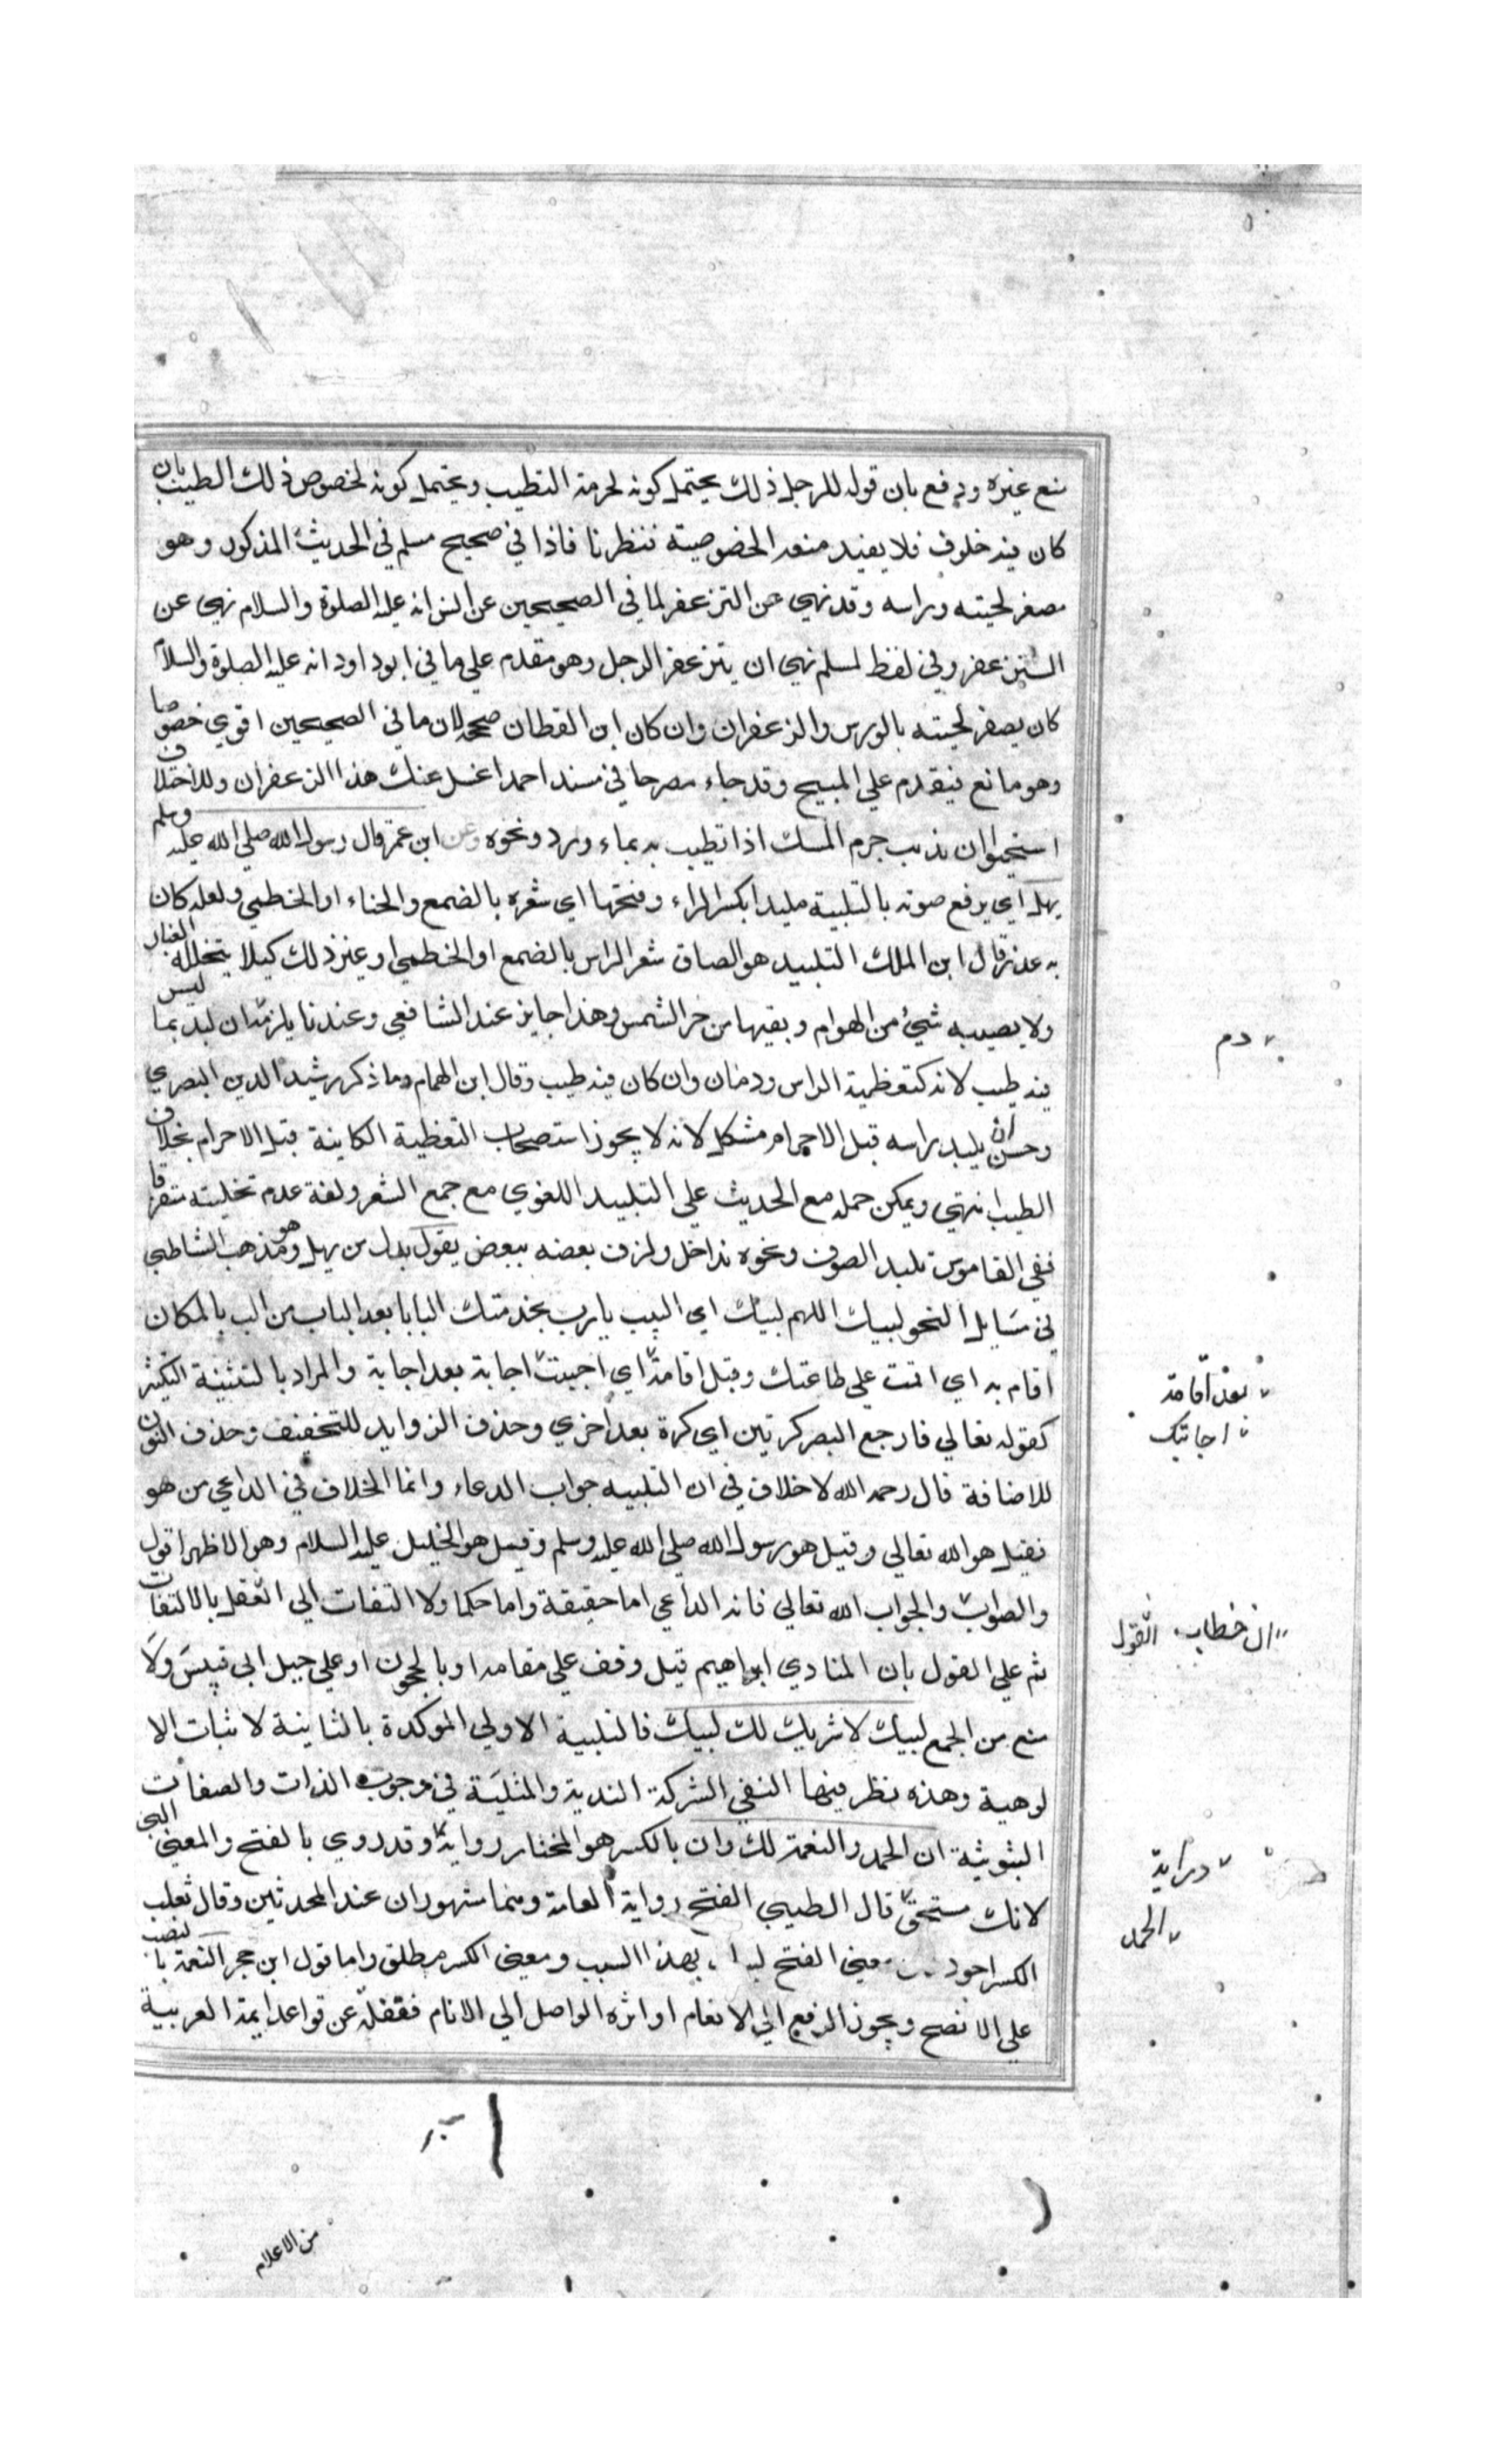 منع غيره ودفع بان قوله للرجل ذلك يحتمل كونه لحرمة التطيب ويحتمل كونه لخصوص ذلك الطيب بان
كان فيه خلوف فلا يفيد منعه الخصوصية فنظرنا فاذا في صحيح مسلم في الحديث المذكور وهو
مصفر لحيته وراسه وقد نهي عن التزعفر لما في الصحيحين عن انس انه عليه الصلوة والسلام نهي عن
التزعفر وفي لفظ لمسلم نهي ان يتزعفر الرجل وهو مقدم علي ما في ابو داود انه عليه الصلوة والسلام
كان يصفر لحيته بالورس والزعفران وان كان ابن القطان صححه لان ما في الصحيحين اقوي خصوصا
وهو مانع فيقدم علي المبيح وقد جاء مصرحا في مسند احمد اغسل عنك هذا الزعفران وللاختلاف
استحبوا ان يذيب جرم المسك اذا تطيب به بماء ورد ونحوه وعن ابن عمر قال رسول الله صلي الله عليه وسلم
يهل اي يرفع صوته بالتلبية ملبدا بكسر الراء وفتحها اي شعره بالضمع والحناء او الخطمي ولعله كان
به عذر قال ابن الملك التلبيد هو الصاق شعر الراس بالضمع او الخطمي او غير ذلك كيلا يتخلله الغبار
ولا يصيبه شيء من الهوام ويقيها من حر الشمس وهذا جايز عند الشافعي وعندنا يلزمه ان لبد بما ليس
فيه طيب لانه كتغطية الراس ودمان وان كان فيه طيب وقال ابن الهمام وما ذكر رشيد الدين البصري
وحسن ان يلبد راسه قبل الاحرام مشكل لانه لا يجوز استصحاب التغطية الكاينة قبل الاحرام بخلاف
الطيب انتهي ويمكن حمله مع الحديث علي التلبيد اللغوي مع جمع الشعر ولفه عدم تخليته متفرقا
ففي القاموس تلبد الصوف ونحوه تداخل ولزق بعضه ببعض يقول بدل من يهل وهو مذهب الشاطبي
في مسايل النحو لبيك اللهم لبيك اي البيت يا رب بخدمتك البابا بعد الباب من الب بالمكان
اقام به اي اقمت علي طاعتك وقبل اقامة اي اجيبت اجابة بعد اجابة والمراد بالتثنية التكثير
كقوله تعالي فارجع البصر كرتين اي كرة بعد اخري وحذف الزوايد للتخفيف وحذف النون
للاضافة قال رحمه الله لا خلاف في ان التلبيه جواب الدعاء وانما الخلاف في الداعي من هو
فقيل هو الله تعالي وقيل هو رسول الله صلي الله عليه وسلم وقيل هو الخليل عليه السلام وهو الاظهر اقول
والصواب والجواب الله تعالي فانه الداعي اما حقيقة واما حكما ولا التفات الي العقل بالالتفات
ثم علي القول بان المنادي ابراهيم قيل وقف علي مقامه او بالحجون او علي جبل ابي قبيس ولا
منع من الجمع لبيك لا شريك لك لبيك فالتلبية الاولي الموكدة بالثانية لاثبات الا
لوهية وهذه نظر فيها النفي الشركة الندية والمثلية في وجوب الذات والصفات
الثبوتية ان الحمد والنعمة لك وان بالكسر هو المختار رواية وقد روي بالفتح والمعني البي
لانك مستحق قال الطيبي الفتح رواية العامة وهما مشهوران عند المحدثين وقال ثعلب
الكسر اجود معني الفتح بهذا السبب ومعني الكسر مطلق واما قول ابن حجر النعمة بالنصب
علي الافصح ويجوز الرفع الي الانعام او اثره الواصل الي الانام فغفلة عن قواعد ايمة العربية
دم
بعد اقامة
اجابتك
ال خطاب القول
دراية
الحمد
من الاعلام